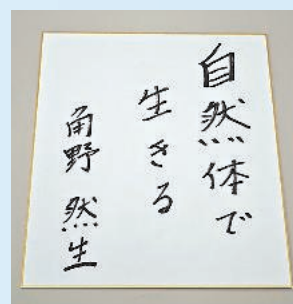 自然体で
生きる
角野 然生